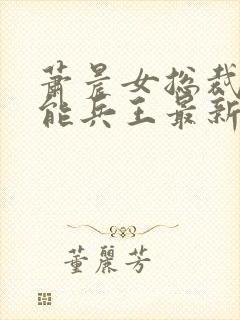 萧晨女总裁
能兵王最新
董麗芳